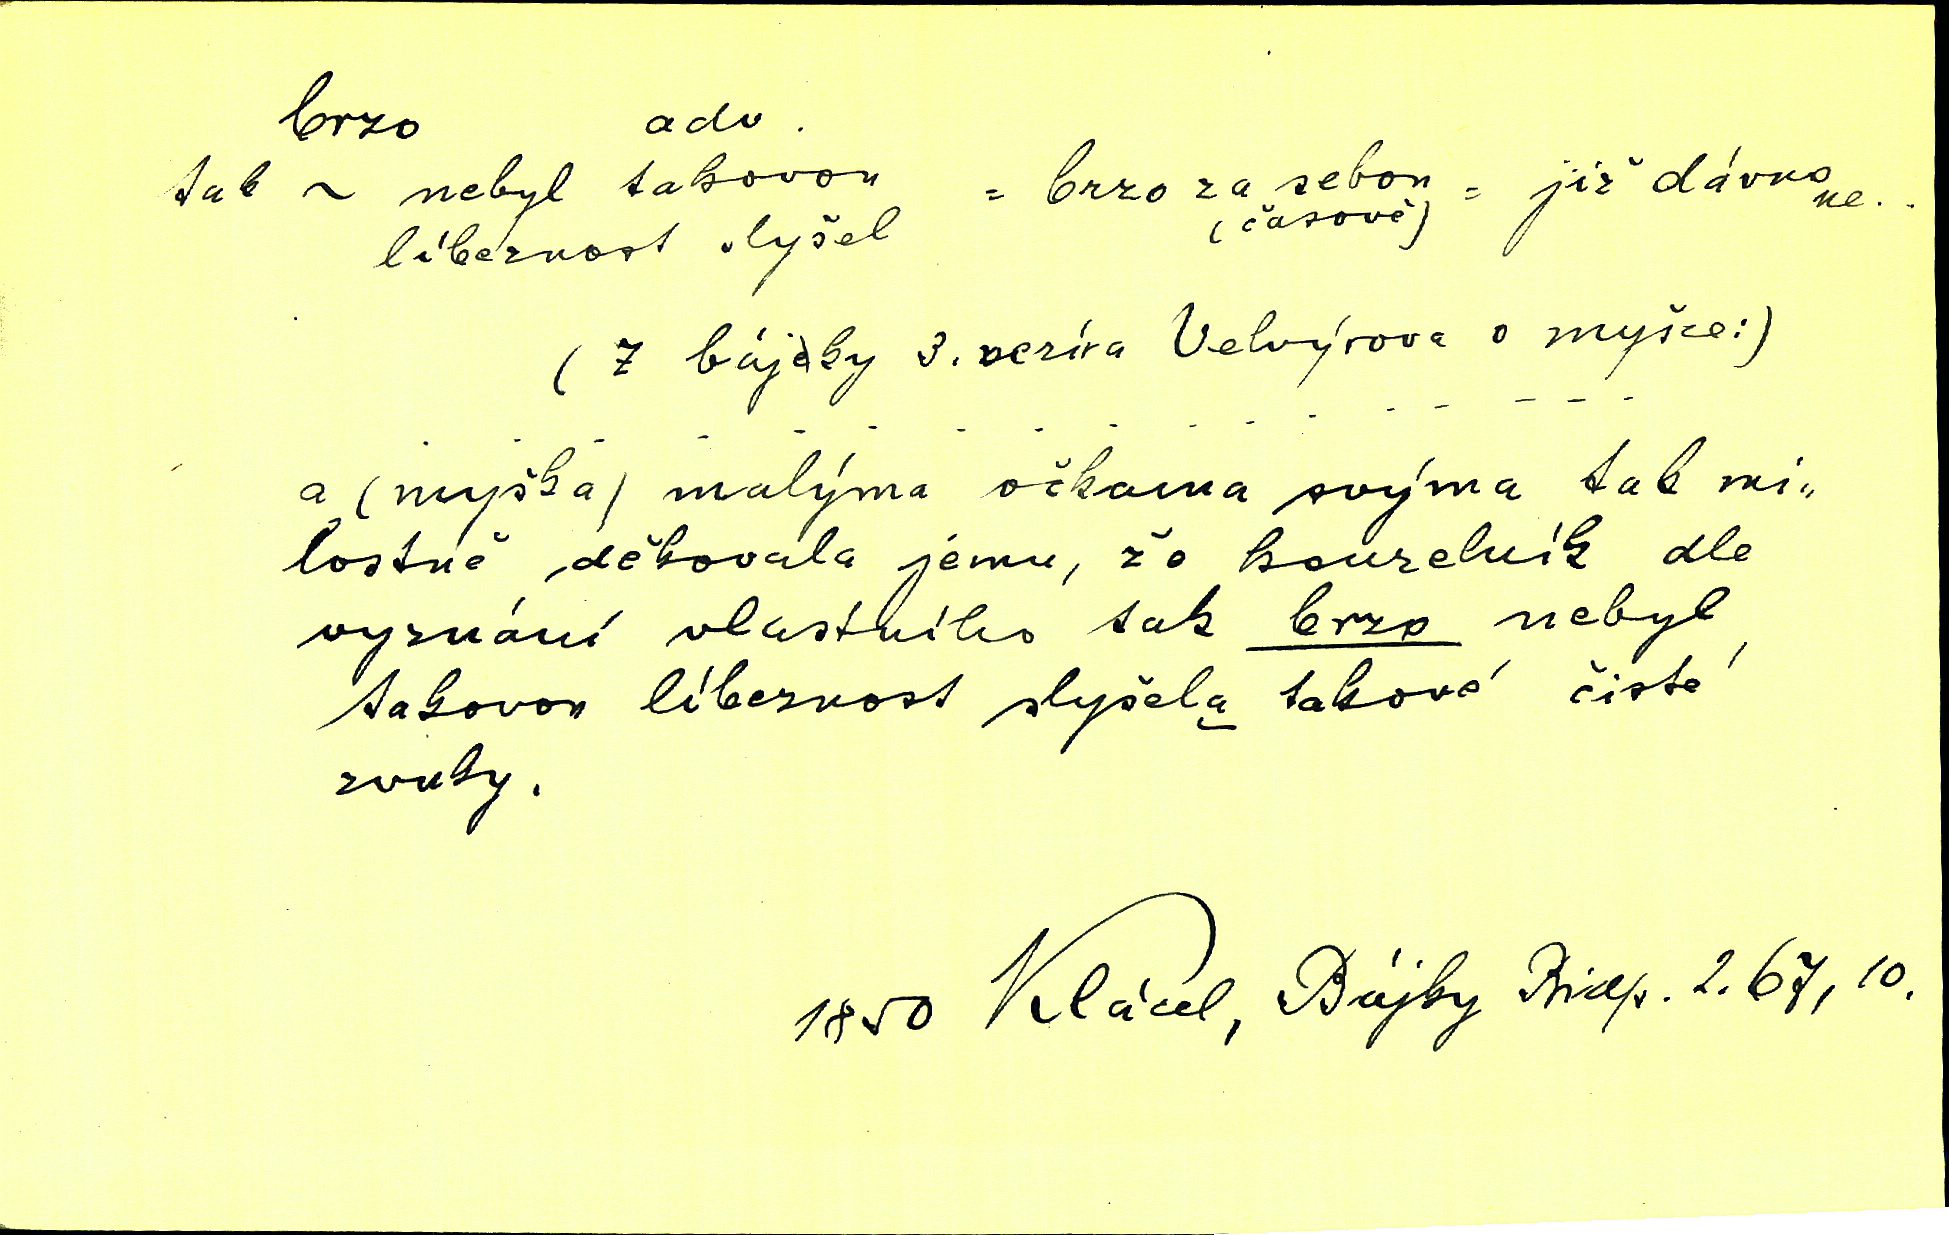 brzo adv.
tak ~ nebyl takovou = brzo za sebou = již dávno
líbeznost slyšel (časově) ne..
(Z bájky 3. Velvýrova o myšce:)
a (myška) malýma očkama svýma tak mi„
lostně děkovala jemu, že kouzelník dle
vyznání vlastního tak brzo nebyl
takovou líbeznost slyšel a takové čisté
zvuky.
1850 Klácel, Bájky Bidp. 2.67, 10.